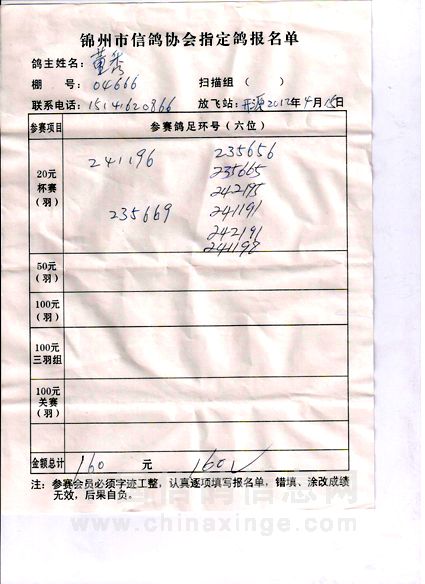 锦州市信鸽协会指定鸽报名单
鸽主姓名：董秀
棚 号：04666 扫描组（ ）
联系电话：15141620866 放飞站：开源2012年4月15日
参赛项目 参赛鸽足环号（六位）
20元杯赛（羽）
241196 235656
235665
242195
235669 241191
242191
241198
50元（羽）
100元（羽）
100元三羽组
100元关赛（羽）
金额总计 160 元 160√
注：参赛会员必须字迹工整，认真逐项填写报名单，错填、涂改成绩
无效，后果自负。
www.chinaxinge.com